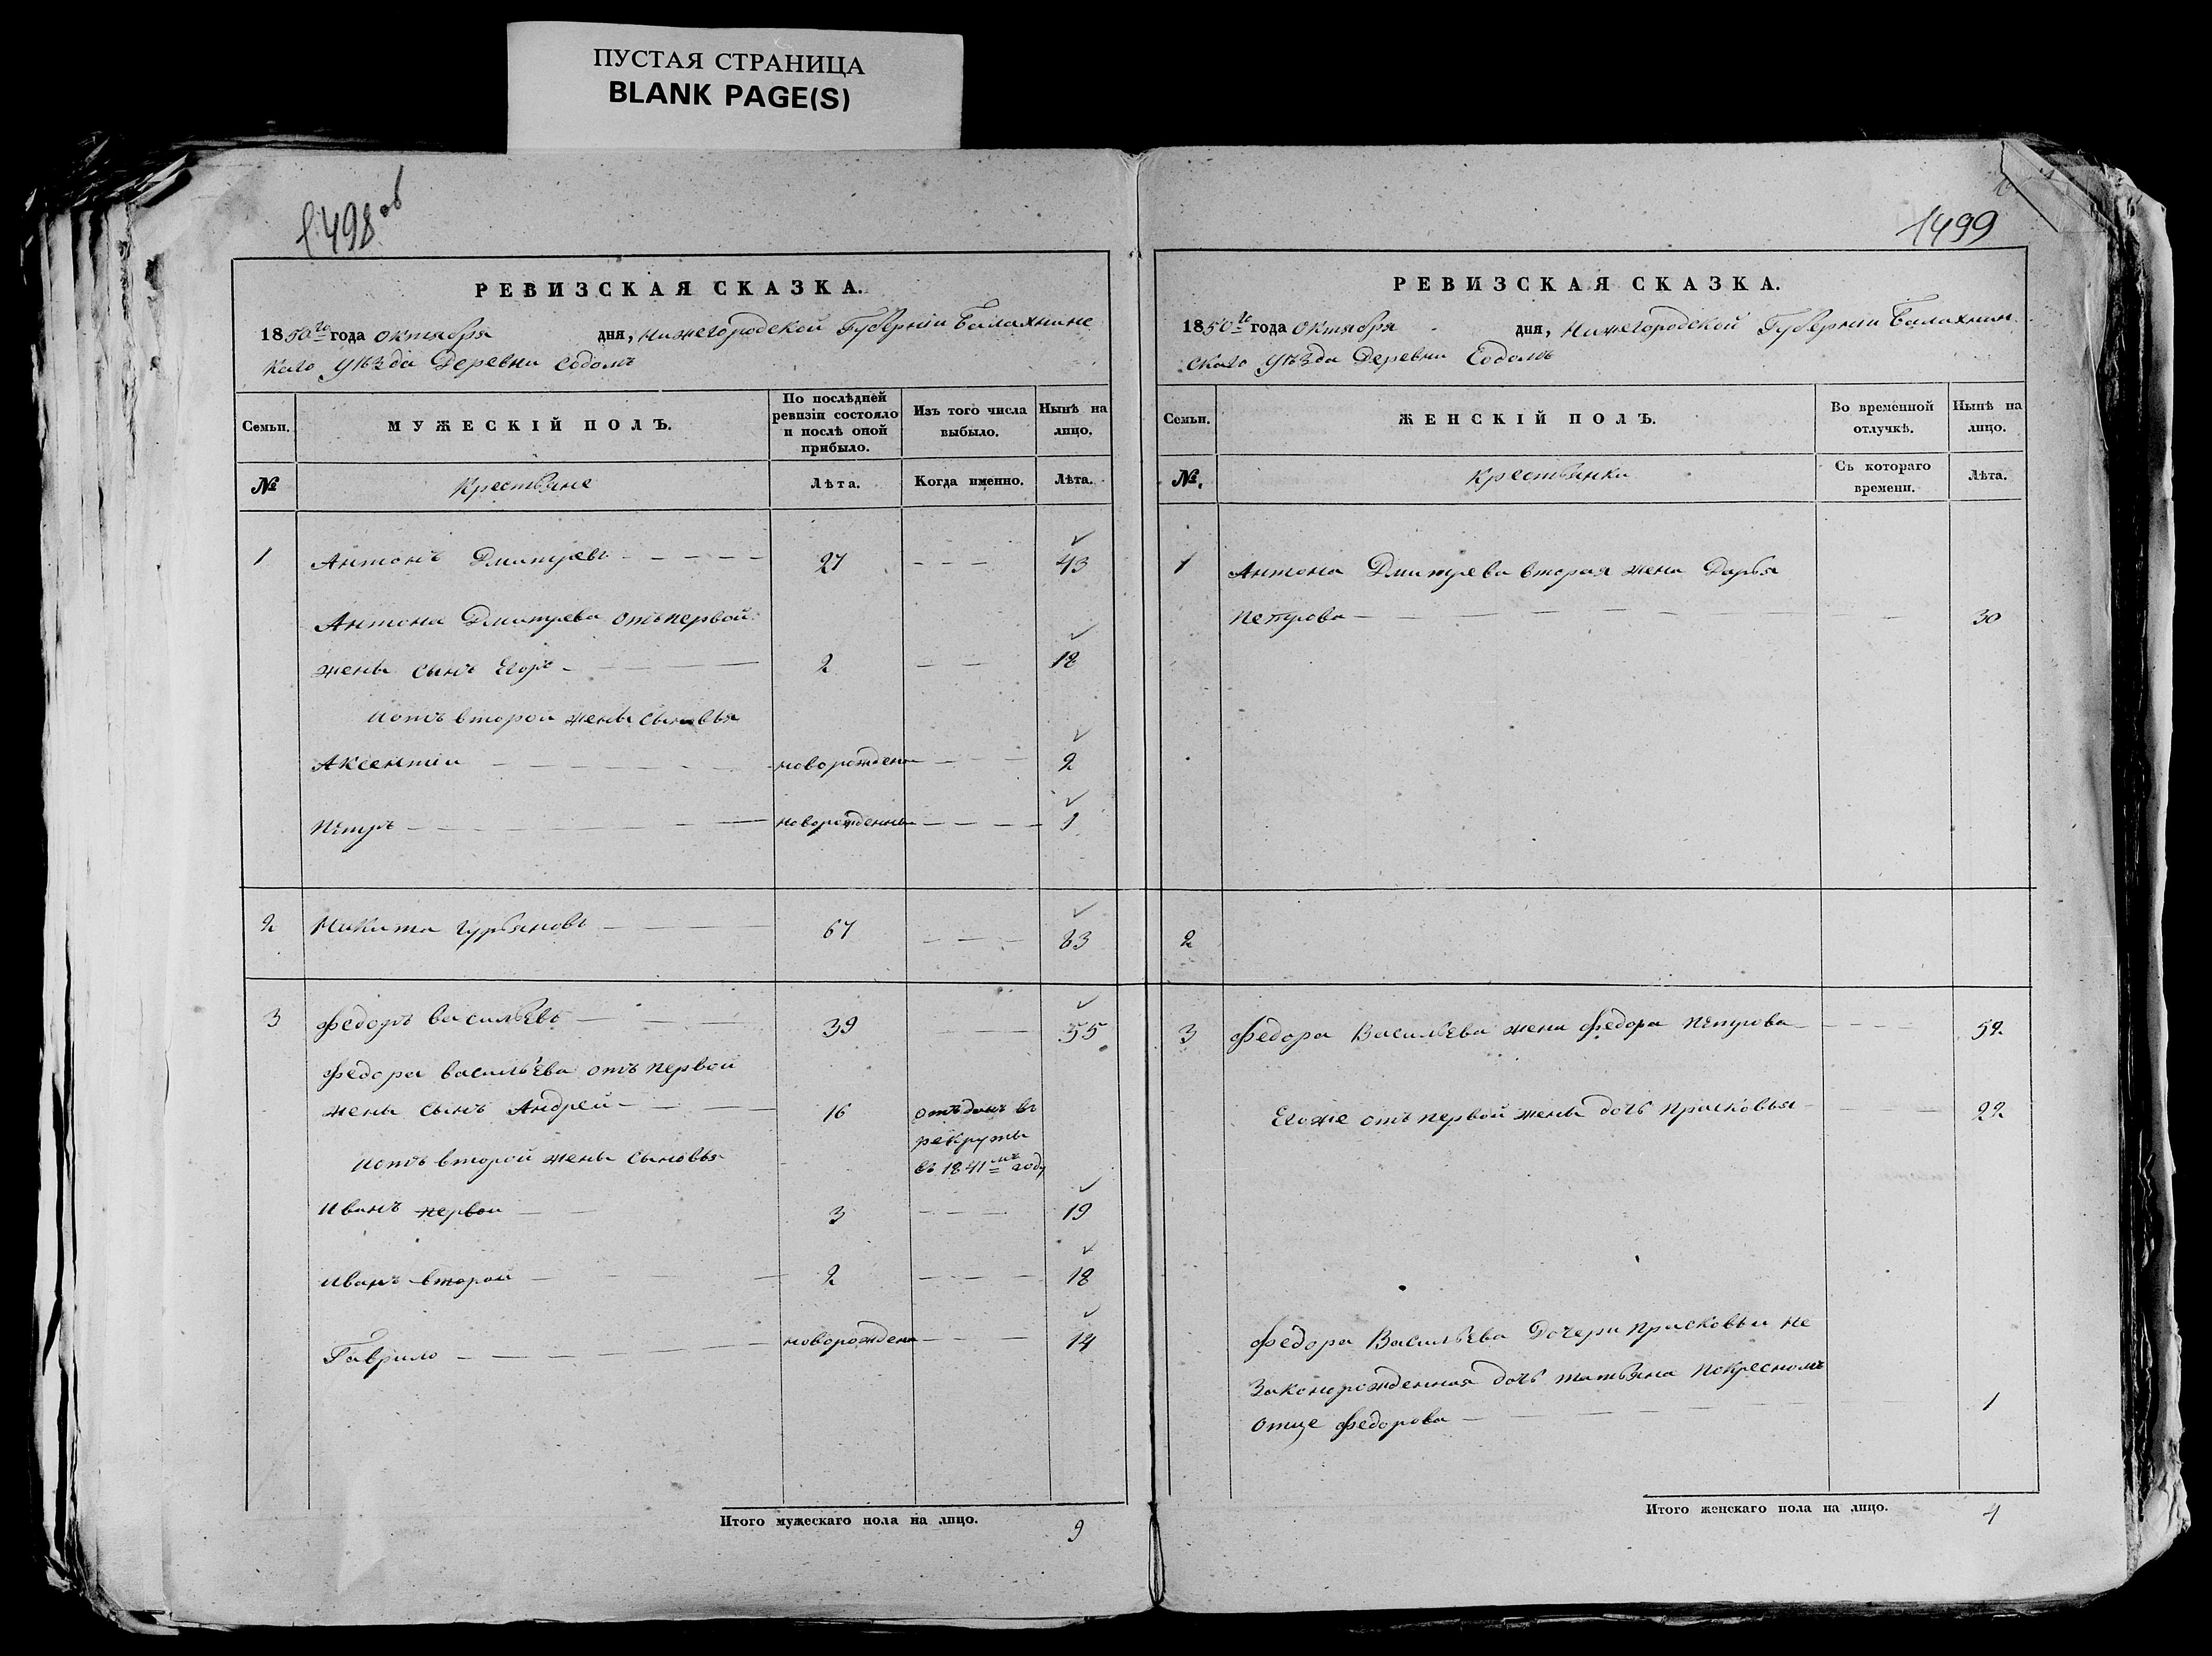 ПУСТАЯ СТРАНИЦА
BLANK PAGE(S)
498 об
РЕВИЗСКАЯ СКАЗКА.
1850го года октября дня, Нижегородской Губерніи Балахнинс
каго уѣзда Деревни Содомъ
Семьи.
МУЖЕСКІЙ ПОЛЪ.
По послѣдней ревизіи состояло и послѣ оной прибыло.
Изъ того числа выбыло.
Нынѣ на лицо.
№
Крестьяне
Лѣта.
Когда именно.
Лѣта.
1 Антонъ Дмитревъ 27 43
Антона Дмитрева отъ первой
жены сынъ Егоръ 2 18
и отъ второй жены сыновья
Аксентіи новорожденн 2
Петръ новорожденны 1
2 Никита Гурьяновъ 67 83
3 Федоръ Васильевъ 39 55
Федора Васильева отъ первой
жены сынъ Андрей 16 отъданъ въ
рекруты
въ 1841мъ году
и отъ второй жены сыновья
Иванъ первои 3 19
Иванъ второи 2 18
Гаврило новорождени 14
Итого мужескаго пола на лицо. 9
499
РЕВИЗСКАЯ СКАЗКА.
1850го года Октября дня, Нижегородской Губерніи Балахнин
скаго уѣзда Деревни Содомъ
Семьи.
ЖЕНСКІЙ ПОЛЪ.
Во временной отлучкѣ.
Нынѣ на лицо.
№.
Крестьянки
Съ котораго времени.
Лѣта.
1 Антона Дмитрева вторая жена Дарья
Петрова 30
2
3 Федора Васильева жена Федора Петрова 52
Егоже отъ первой жены дочь Прасковья 22
Федора Васильева Дочери Прасковьи не
законорожденная дочь татьяна покресномъ
отце Федорова 1
Итого женскаго пола на лицо. 4